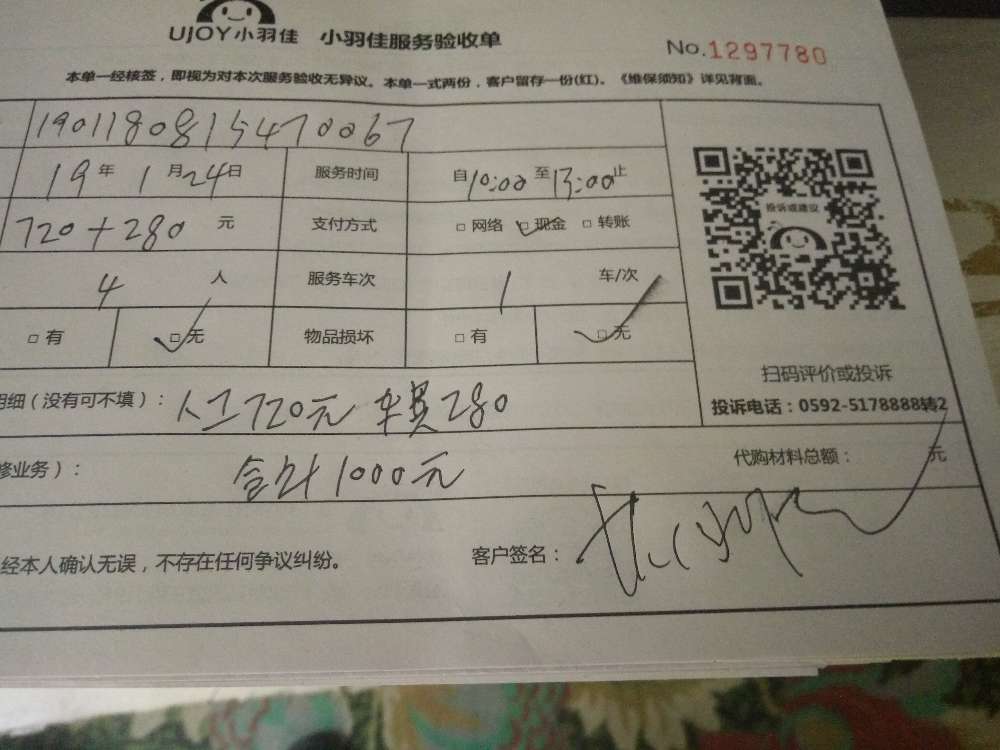 UJOY小羽佳 小羽佳服务验收单
No.1297780
本单一经核签，即视为对本次服务验收无异议。本单一式两份，客户留存一份(红)。《维保须知》详见背面。
1901180815470067
19年1月24日 服务时间 自10:00至13:00止
投诉或建议
720+280 元 支付方式 □网络 □现金 □转账
4 人 服务车次 1 车/次
□有 □无 物品损坏 □有 □无
扫码评价或投诉
明细（没有可不填）： 人工720元 车费280
投诉电话：0592-5178888转2
修业务）： 合计1000元 代购材料总额： 元
经本人确认无误，不存在任何争议纠纷。 客户签名：